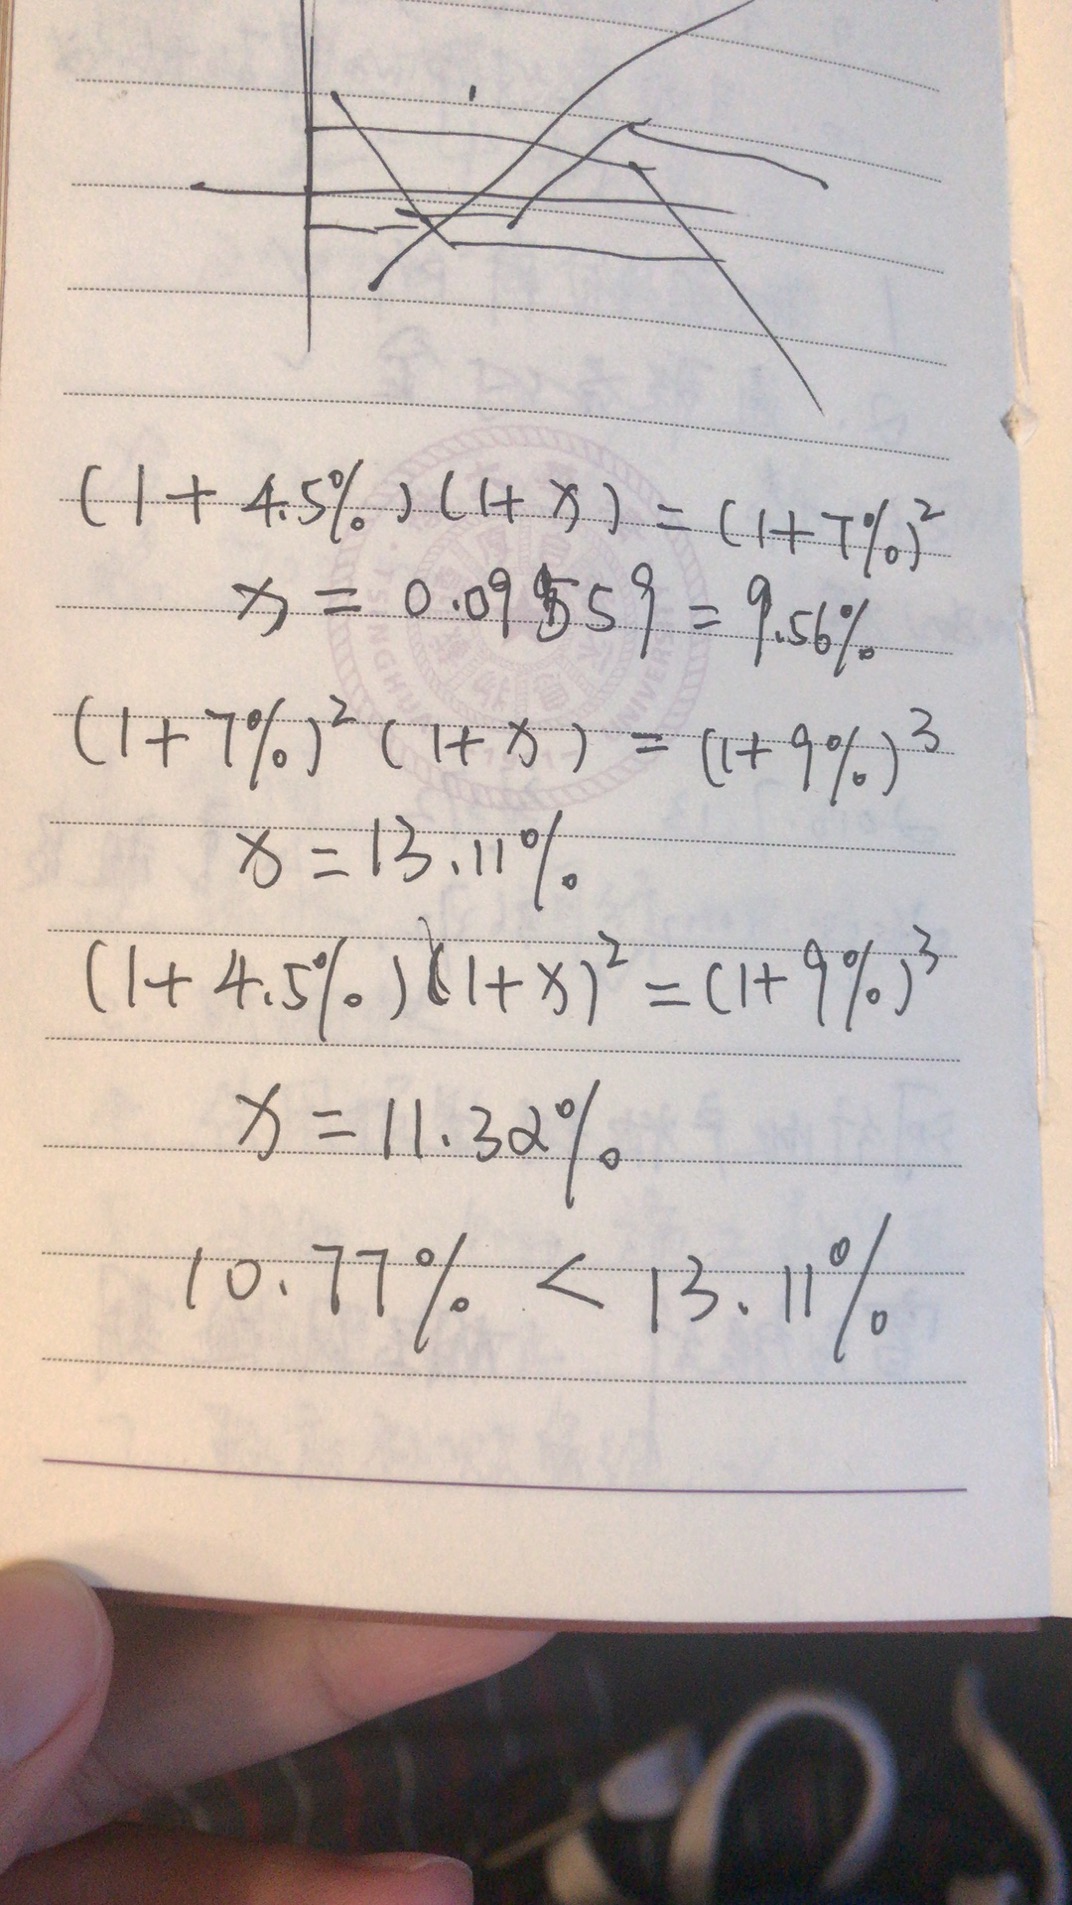 (1+4.5%)(1+x)=(1+7%)²
x=0.09559=9.56%
(1+7%)²(1+x)=(1+9%)³
x=13.11%
(1+4.5%)(1+x)²=(1+9%)³
x=11.32%
10.77%<13.11%